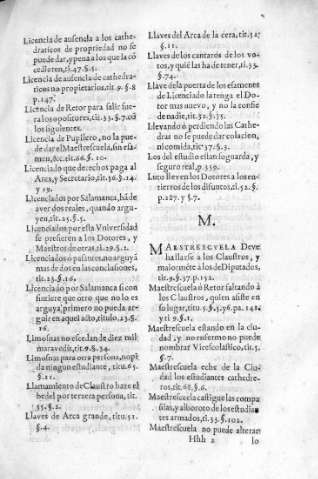 Licencia de ausencia a los cathe-
draticos de propriedad no se
puede dar, y pena a los que la có
cedieren, ti.47. §.5.
Licencia de ausencia de cathedra-
ticos no proprietarios, tit. 9. §.8
p.147.
Licencia de Retor para salir fue-
ra los opositores, tit. 33. §.7. có
los siguientes.
Licencia de Pupilero, no la pue-
de dar el Maestrescuela, sin exa-
men, &c. tit. 66. §. 10.
Licenciado lo que derechos paga al
Arca, y Secretario, tit. 30. §. 14.
y 19.
Licenciados por Salamanca, há de
aver dos reales, quando argu-
yen, tit. 25. §. 5.
Licenciados por esta Vniversidad
se prefieren a los Dotores, y
Maestros de otras, ti. 29. §. 2.
Licenciados o passantes, no arguyá
mas de dos en las conclusiones,
tit. 23. §. 16.
Licenciado por Salamanca si con
sintiere que otro que no lo es
arguya, primero no pueda ar-
guir en aquel acto, titulo. 23. §.
16.
Limosnas no excedan de diez mil
maravedis, tit. 9. §. 34.
Limosnas para otra persona, no pi
da ningun estudiante, titu. 65.
§. 11.
Llamamiento de Claustro haze el
bedel por tercera persona, tit.
35. §. 2.
Llaves de Arca grande, titu. 51.
§. 4.
Llaves del Arca de la cera, tit.
§. 11.
Llaves de los cantaros de los vo-
tos, y quié las ha de tener, ti. 33.
§. 74.
Llave de la puerta de los exámenes
de Licenciado la tenga el Do-
tor mas nuevo, y no la confie
de nadie, tit. 32. §. 35.
Llevando ò perdiendo las Cathe-
dras no se puede dar colacion,
ni comida, tit. 37. §. 3.
Los del estudio estan so guarda, y
seguro real, p. 359.
Luto lleven los Dotores a los en-
tierros de los difuntos, ti. 52. §.
p. 227. y §. 7.
M.
MAESTRESCVELA Deve
hallarse a los Claustros, y
mayormete à los de Diputados,
tit. 9. §. 37. p. 152.
Maestrescuela ò Retor faltando à
los Claustros, quien assiste en
su lugar, titu. 5. §. 5. 36. pa. 142.
y ti 9. §. 1.
Maestrescuela estando en la ciu-
dad, y no enfermo no puede
nombrar Vicescolastico, tit. 5.
§. 7.
Maestrescuela eche de la Ciu-
dad los estudiantes cathedre-
ros, tit. 68. §. 6.
Maestrescuela castigue las compa-
ñias, y alboroto de los estudian
tes armados, ti. 33. §. 102.
Maestrescuela no puede alteran
Hhh 2 lo